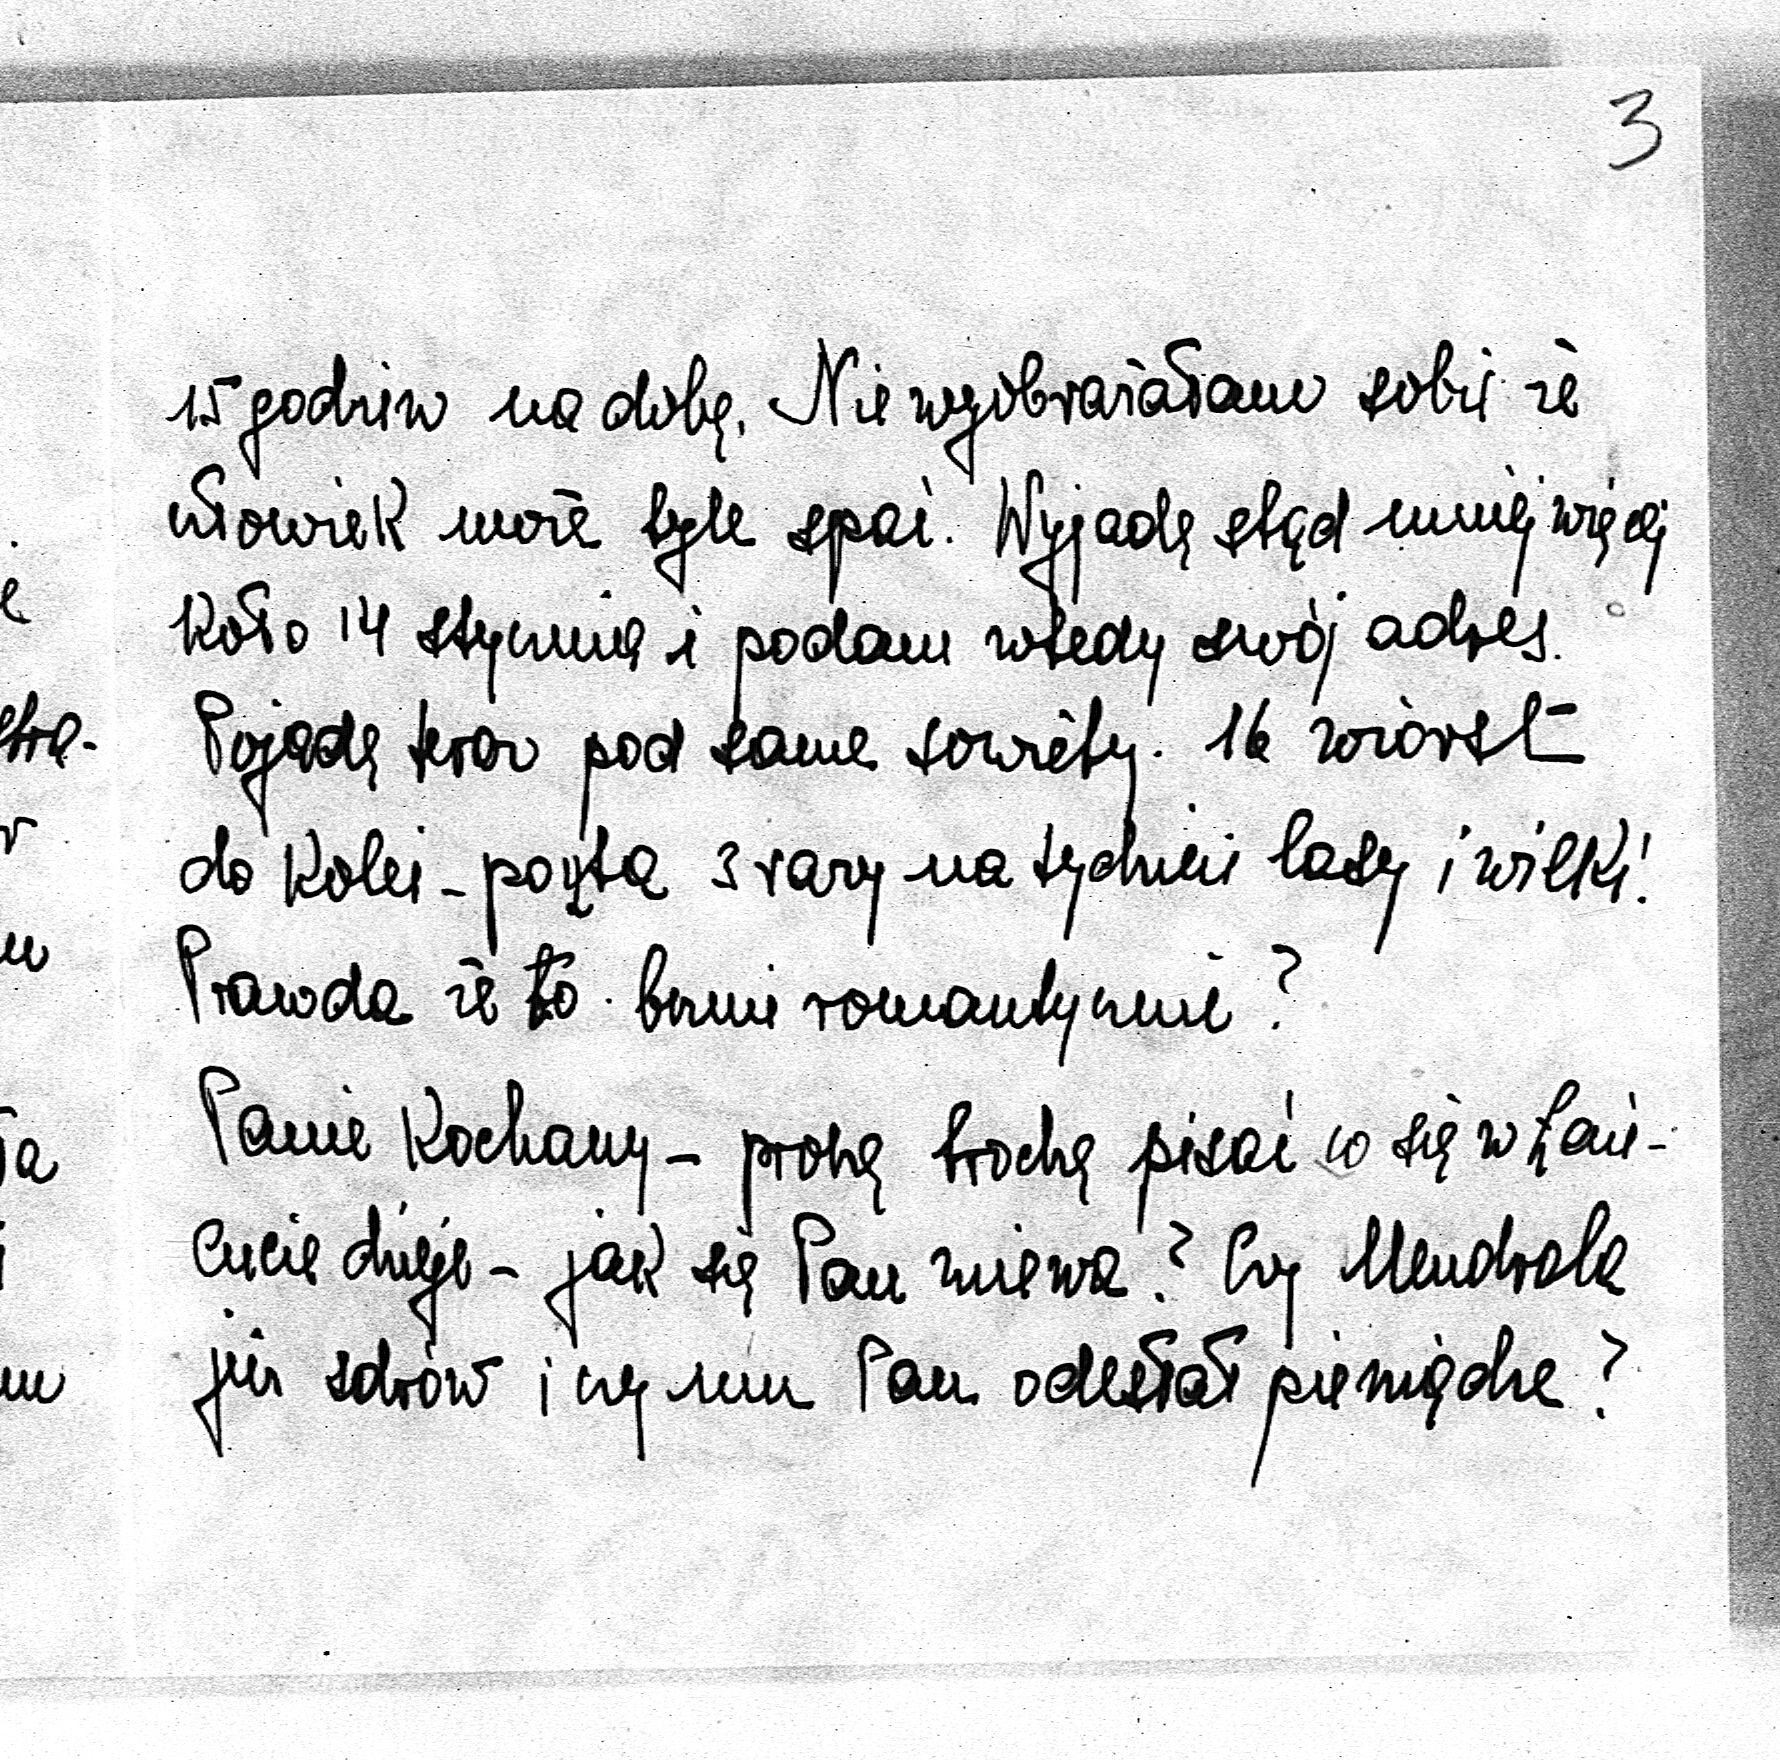 3
15 godzin na dobę. Nie wyobrażałam sobie że
człowiek może tyle spać. Wyjadę stąd mniej więcej
koło 14 stycznia i podam wtedy swój adres.
Pojadę teraz pod same sowiety. 16 wiorst
do kolei - poczta 3 razy na tydzień lasy i wilki!
Prawda że to romantycznie?
Panie Kochany - proszę trochę pisać co się w Łań-
cucie dzieje - jak się Pan miewa? Czy Mendrala
już zdrów i czy mu Pan odesłał pieniądze?